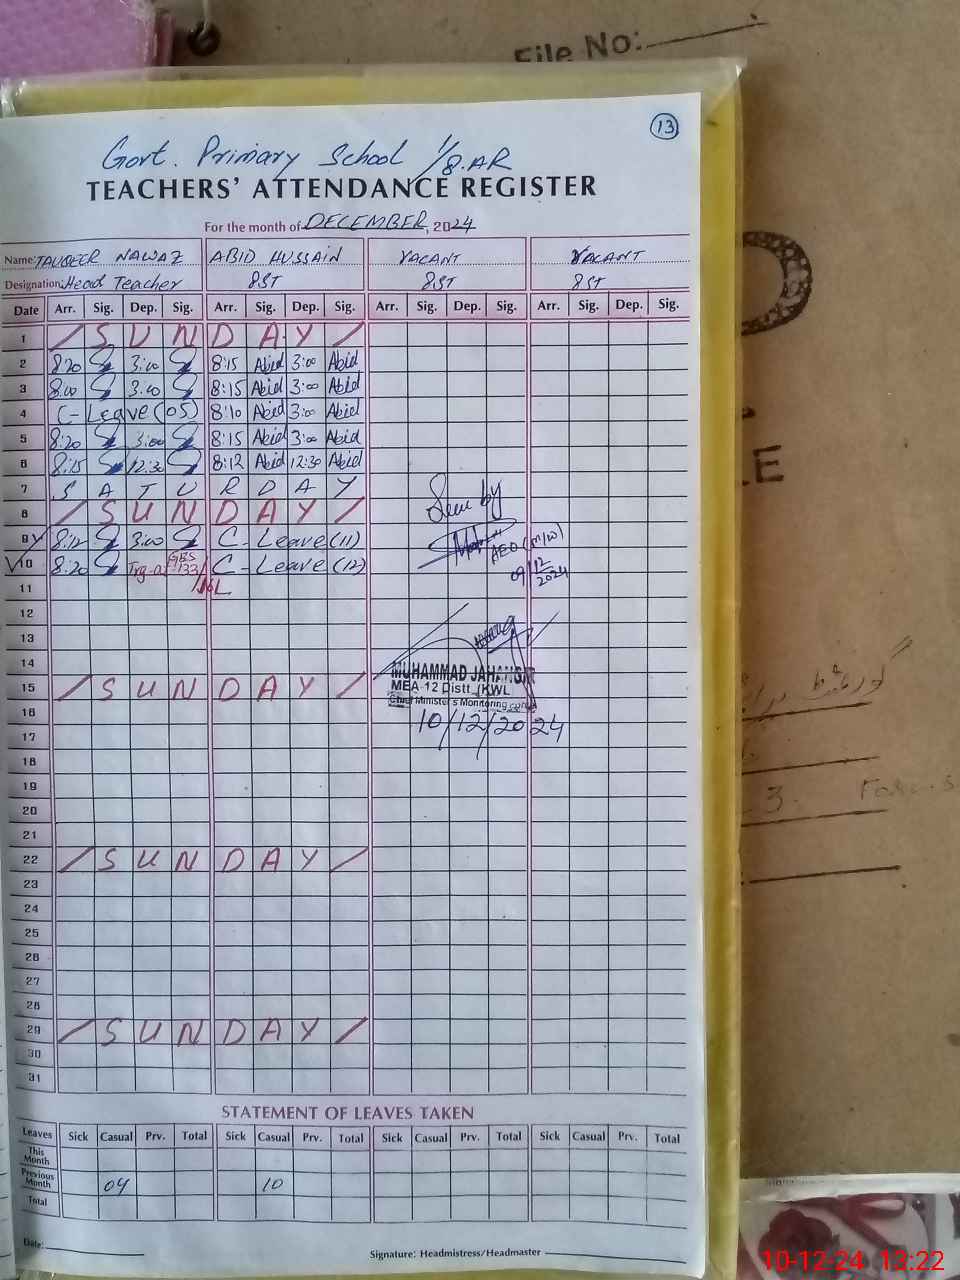 File No:
13
Govt. Primary School 1/8.AR
TEACHERS' ATTENDANCE REGISTER
For the month of DECEMBER, 2024
Name: TAUQEER NAWAZ ABID HUSSAIN VACANT VACANT
Designation: Head Teacher PST PST PST
Date Arr. Sig. Dep. Sig. Arr. Sig. Dep. Sig. Arr. Sig. Dep. Sig. Arr. Sig. Dep. Sig.
1 / S U N D A Y /
2 8:20 3:00 8:15 Abid 3:00 Abid
3 8:00 3:00 8:15 Abid 3:00 Abid
4 C-Leave (05) 8:10 Abid 3:00 Abid
5 8:20 3:00 8:15 Abid 3:00 Abid
6 8:15 12:30 8:12 Abid 12:30 Abid
7 S A T U R D A Y
8 / S U N D A Y /
Seen by
9 8:12 3:00 C-Leave (11)
AEO (M/W)
10 8:20 Trg-at GES 133/ C-Leave (12)
09/12/2024
11
12
13
14
MUHAMMAD JAHANGIR
15 / S U N D A Y /
MEA-12 Distt. KWL
Chief Minister's Monitoring
16
10/12/2024
17
18
19
20
21
22 / S U N D A Y /
23
24
25
26
27
28
29 / S U N D A Y /
30
31
STATEMENT OF LEAVES TAKEN
Leaves Sick Casual Prv. Total Sick Casual Prv. Total Sick Casual Prv. Total Sick Casual Prv. Total
This Month
Previous Month 04 10
Total
Date:
Signature: Headmistress/Headmaster
10-12-24 13:22